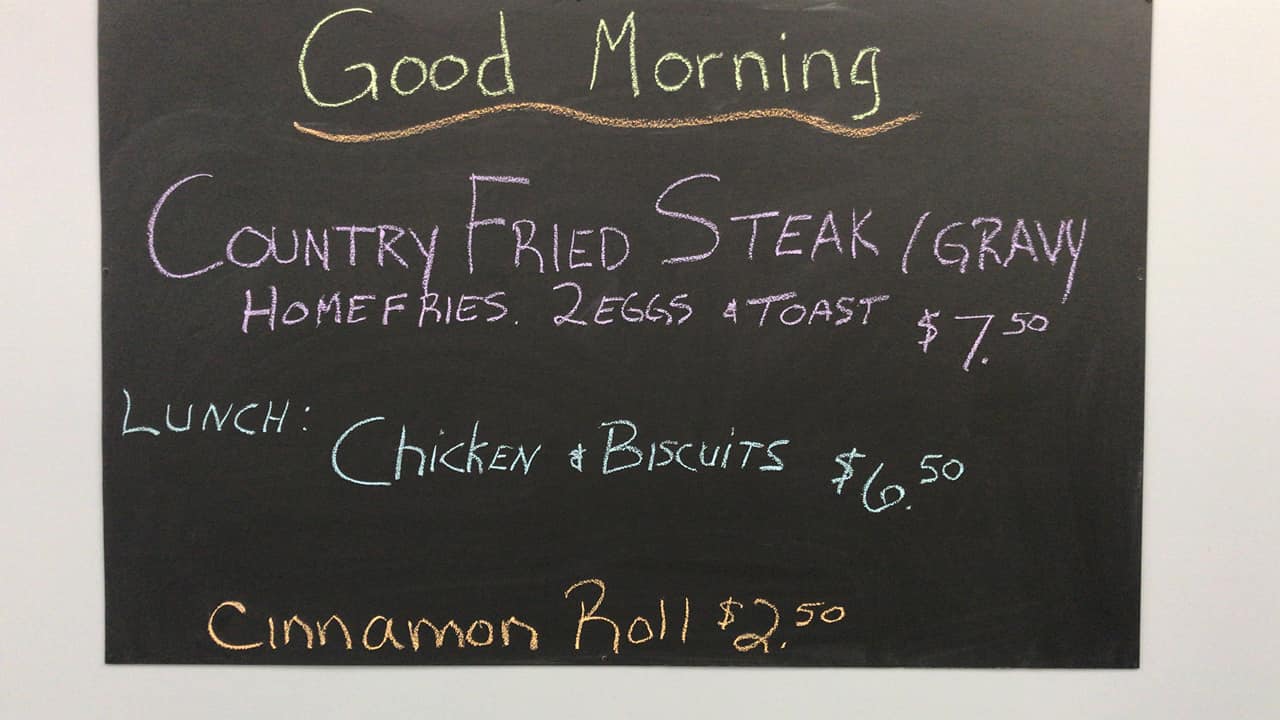 Good Morning
COUNTRY FRIED STEAK / GRAVY
HOMEFRIES. 2 EGGS & TOAST $7.50
LUNCH: ChickEN & BISCUITS $6.50
Cinnamon Roll $2.50